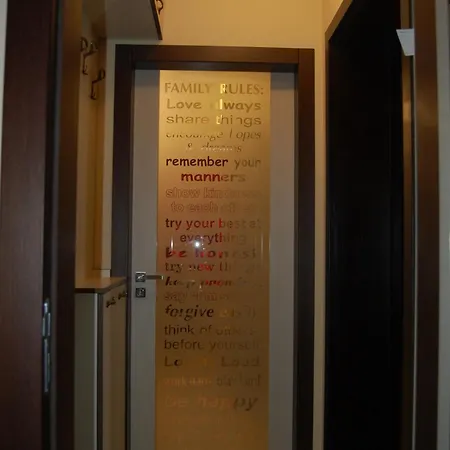 FAMILY RULES:
Love always
share things
encourage hopes
& dreams
remember your
manners
show kindness
to each other
try your best at
everything
be honest
try new things
keep
forgive
think of others
before yourself
Laugh Loud
be happy